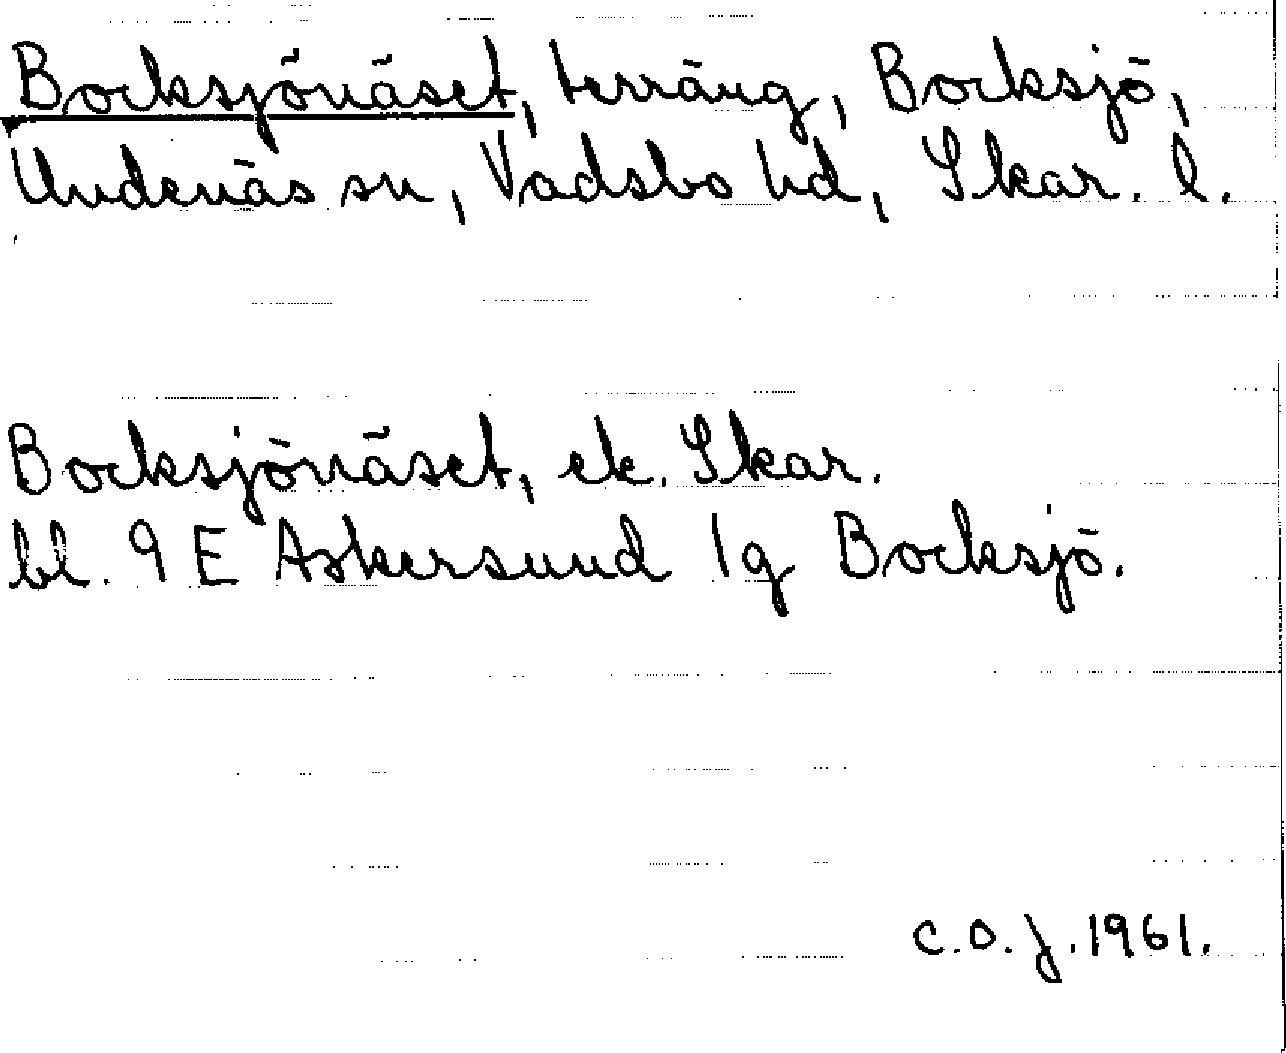 Bocksjönäset, terräng, Bocksjö,
Undenäs sn, Vadsbo hd, Skar. l.
Bocksjönäset, ek. Skar.
bl. 9 E Askersund 1g Bocksjö.
C.O.J. 1961.